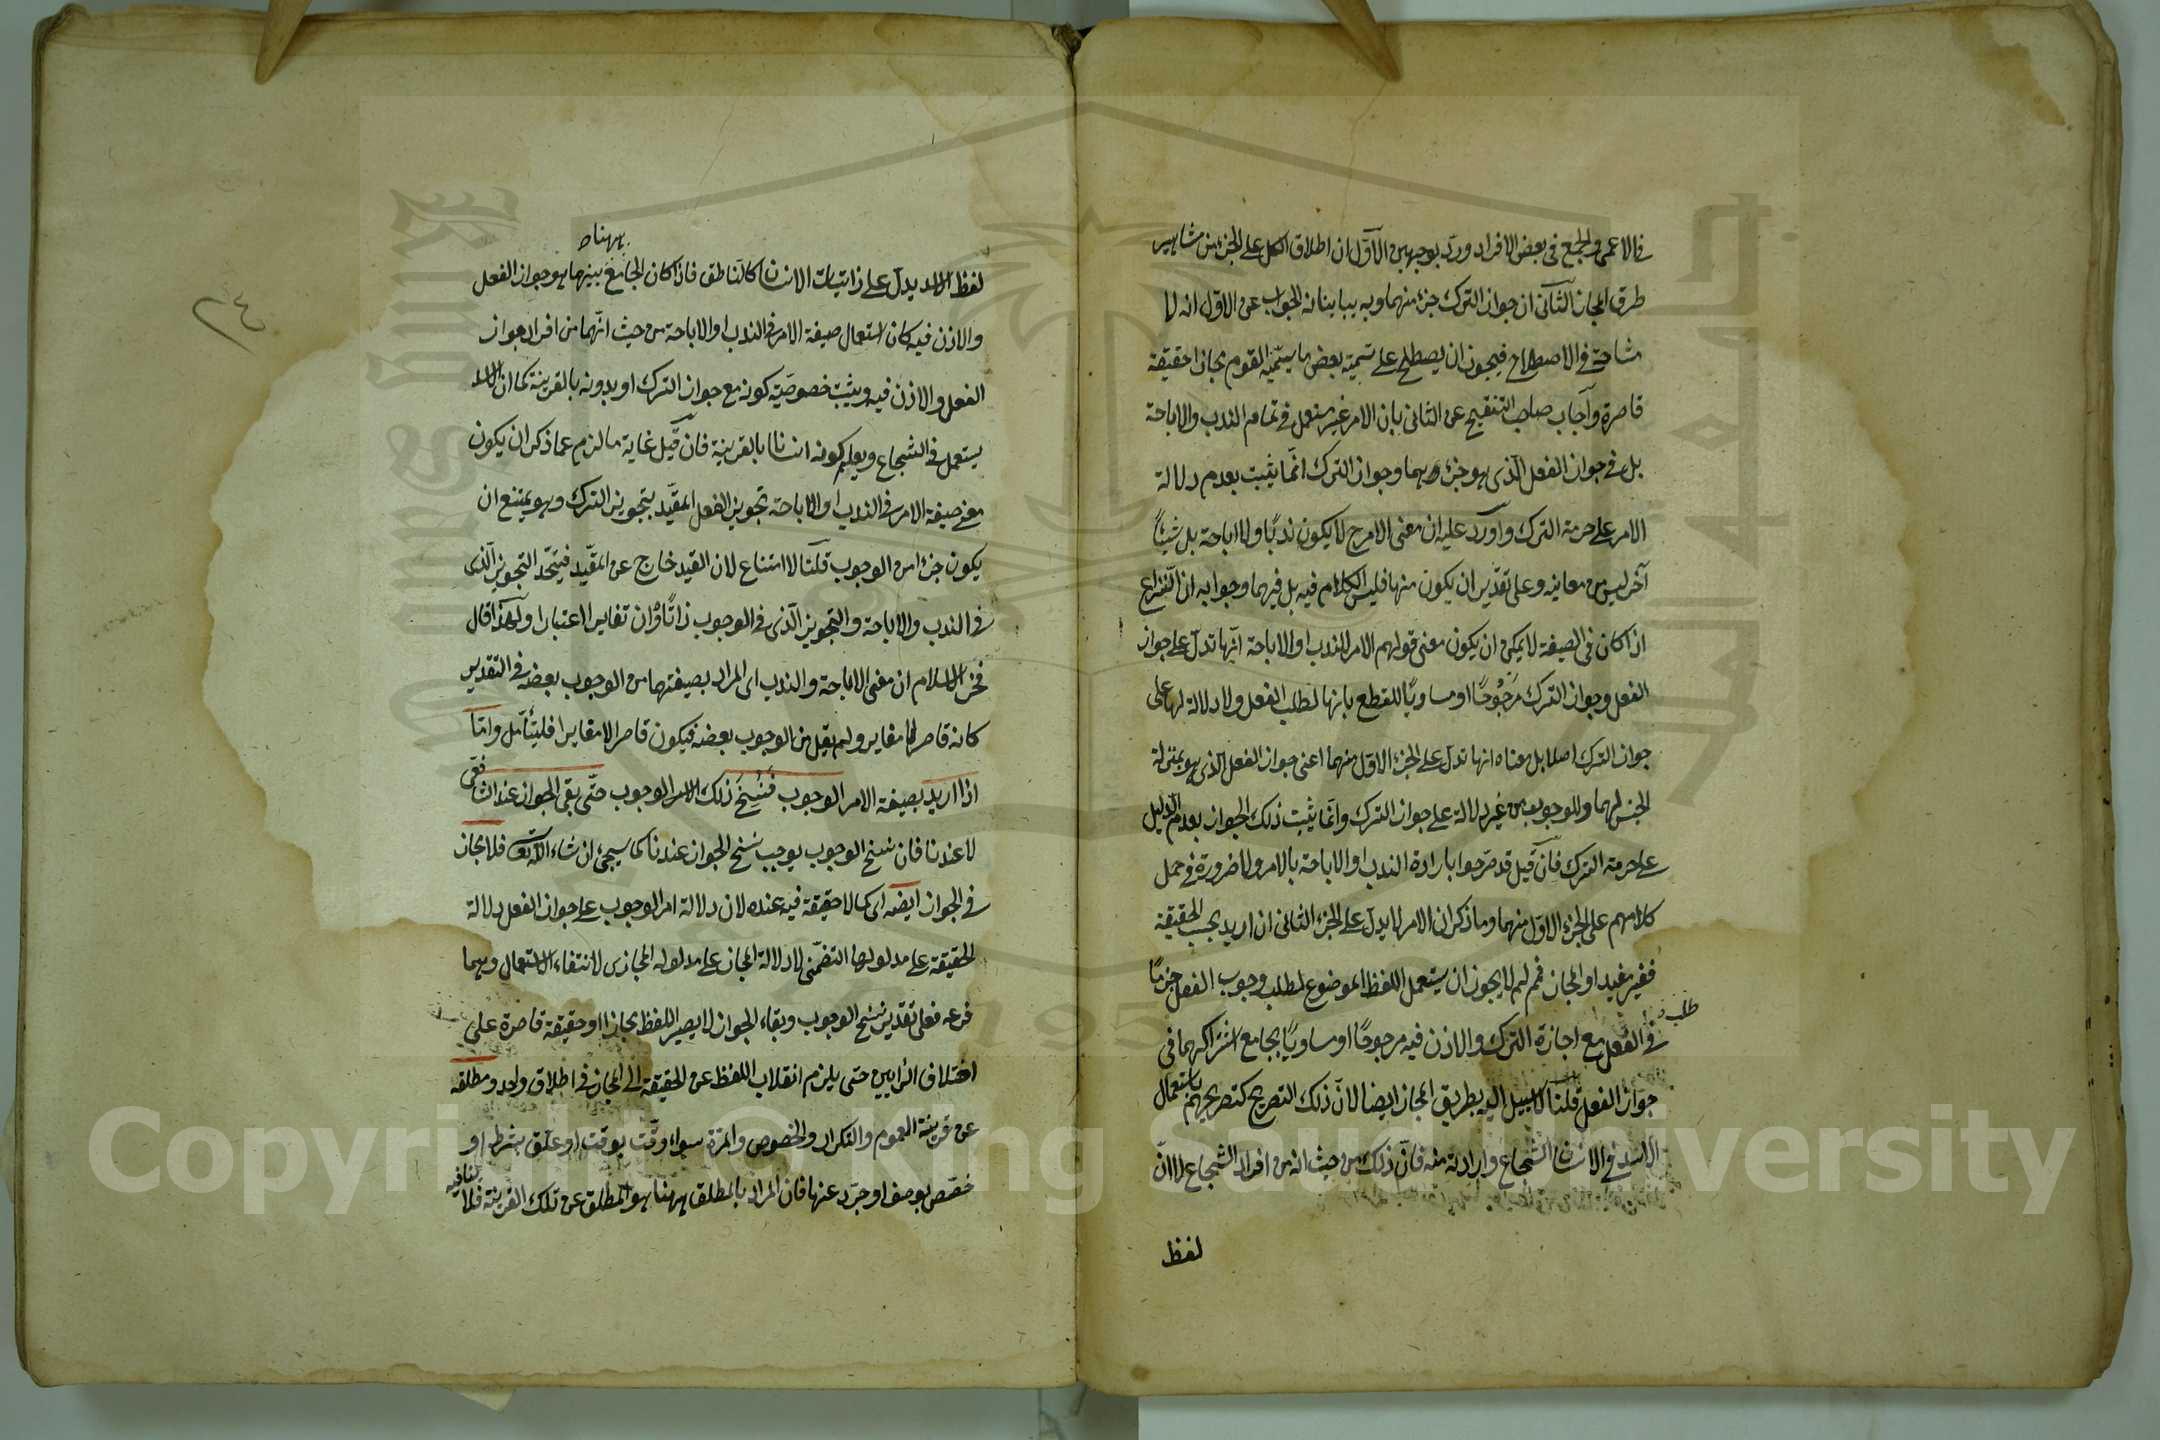 في الاعمى والجمع في بعض الافراد ورد بوجهين الاول ان اطلاق الكل على الجزء من مشاهير
طرق المجاز الثاني ان جواز الترك جزء منهما وبه يباينانه الجواب عن الاول انه لا
مشاحة في الاصطلاح فيجوز ان يصطلح على تسمية بعض ما يسميه القوم مجازا حقيقة
قاصرة وأجاب صاحب التنقيح عن الثاني بان الامر غير مستعمل في تمام الندب والاباحة
بل في جواز الفعل الذي هو جزء هما وجواز الترك انما يثبت بعدم دلالة
الامر على حرمة الترك واورد عليه ان معنى الامر ح لا يكون ندبًا ولا اباحة بل شيئًا
آخر ليس من معانيه وعلى تقدير ان يكون منها فليس الكلام فيه بل فيهما وجوابه ان النزاع
اذا كان في الصيغة لا يمكن ان يكون معنى قولهم الامر للندب او الاباحة انها تدل على جواز
الفعل وجواز الترك مرجوحًا او مساويًا للقطع بانها لطلب الفعل ولا دلالة لها على
جواز الترك اصلا بل معناه انها تدل على الجزء الاول منهما اعني جواز الفعل الذي هو بمنزلة
الجنس لهما وللوجوب من غير دلالة على جواز الترك وانما يثبت ذلك الجواز بعدم الدليل
على حرمة الترك فان قيل قد صرحوا بارادة الندب او الاباحة بالامر ولا ضرورة في حمل
كلامهم على الجزء الاول منهما وما ذكر ان الامر لا يدل على الجزء الثاني ان اريد بحسب الحقيقة
فغير مفيد او المجاز فمم لم لا يجوز ان يستعمل اللفظ الموضوع لطلب وجوب الفعل جزمًا
طلب
في الفعل مع اجازة الترك والاذن فيه مرجوحًا او مساويًا بجامع اشتراكهما في
جواز الفعل قلنا لا سبيل اليه بطريق المجاز ايضا لان ذلك التصريح كتصريحهم باستعمال
الاسد في الانسان الشجاع وارادته منه فان ذلك من حيث انه من افراد الشجاع لا ان
لفظ
٢٤
ههنا
لفظ الاسد يدل على ذاتيات الانسان كالناطق فاذا كان الجامع بينهما هو جواز الفعل
والاذن فيه كان استعمال صيغة الامر في الندب او الاباحة من حيث انهما من افراد جواز
الفعل والاذن فيه ويثبت خصوصية كونه مع جواز الترك او بدونه بالقرينة كما ان الاسد
يستعمل في الشجاع ويعلم كونه انسانا بالقرينة فان قيل غاية ما لزم مما ذكر ان يكون
معنى صيغة الامر في الندب او الاباحة تجويز الفعل المقيد بتجويز الترك وهو يمتنع ان
يكون جزء امن الوجوب قلنا لا امتناع لان القيد خارج عن المقيد فيتحد التجويز الذي
في الندب والاباحة والتجويز الذي في الوجوب ذاتًا وان تغايرا اعتبارا ولهذا قال
فخر الاسلام ان معنى الاباحة والندب اي المراد بصيغتهما من الوجوب بعضه في التقدير
كانه قاصر لا مغاير ولم يقل من الوجوب بعضه فيكون قاصرا لا مغايرا فليتأمل واما
اذا اريد بصيغة الامر الوجوب فنسخ ذلك الامر الوجوب حتى بقي الجواز عند الشافعي
لا عندنا فان نسخ الوجوب يوجب نسخ الجواز عندنا كما سيجئ ان شاء الله تعالى فلا مجاز
في الجواز ايضا اي كما لا حقيقة فيه عنده لان دلالة امر الوجوب على جواز الفعل دلالة
الحقيقة على مدلولها التضمني لا دلالة المجاز على مدلوله المجازي لانتفاء الاستعمال وهما
فرعه فعلى تقدير نسخ الوجوب وبقاء الجواز لا يصير اللفظ مجازا او حقيقة قاصرة على
اختلاف الرأيين حتى يلزم انقلاب اللفظ عن الحقيقة الى المجاز في اطلاق واحد ومطلقه
عن قرينة العموم والتكرار والخصوص والمرة سواء وقت بوقت او علق بشرط او
خصص بوصف او جرد عنها فان المراد بالمطلق ههنا هو المطلق عن تلك القرينة فلا ينافيه
Copyright © King Saud University